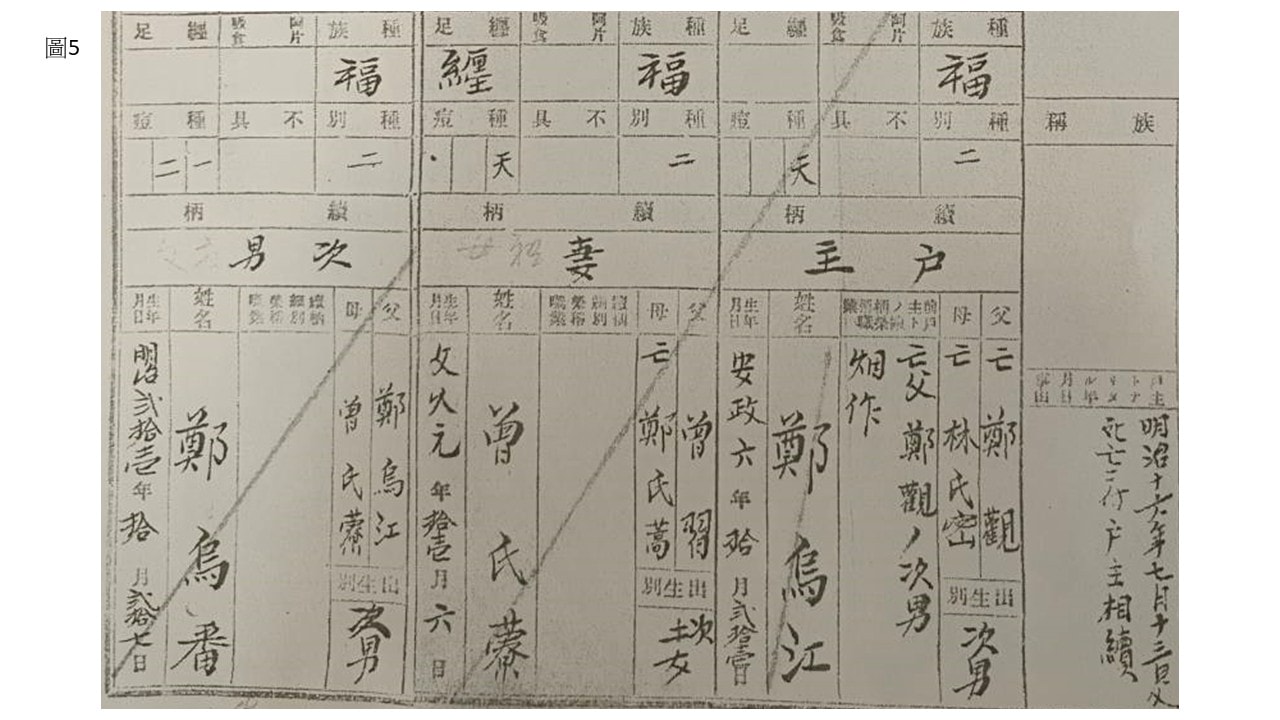 圖5
族稱
戶主トナリタル年月日事由
明治十六年七月十三日父
死亡ニ付戶主相續
種族
福
阿片吸食
纏足
種別
二
不具
種痘
天
續柄
戶主
父
亡 鄭觀
母
亡 林氏密
出生別
次男
亡父鄭觀ノ次男
烟作
姓名
鄭烏江
生年月日
安政六年拾月貳拾壹日
種族
福
阿片吸食
纏足
纏
種別
二
不具
種痘
天
續柄
妻
父
曾習
母
亡 鄭氏蒿
出生別
次女
姓名
曾氏藔
生年月日
文久元年拾壹月六日
種族
福
阿片吸食
纏足
種別
二
不具
種痘
一 二
續柄
次男
父
鄭烏江
母
曾氏藔
出生別
次男
姓名
鄭烏番
生年月日
明治貳拾壹年拾月貳拾七日